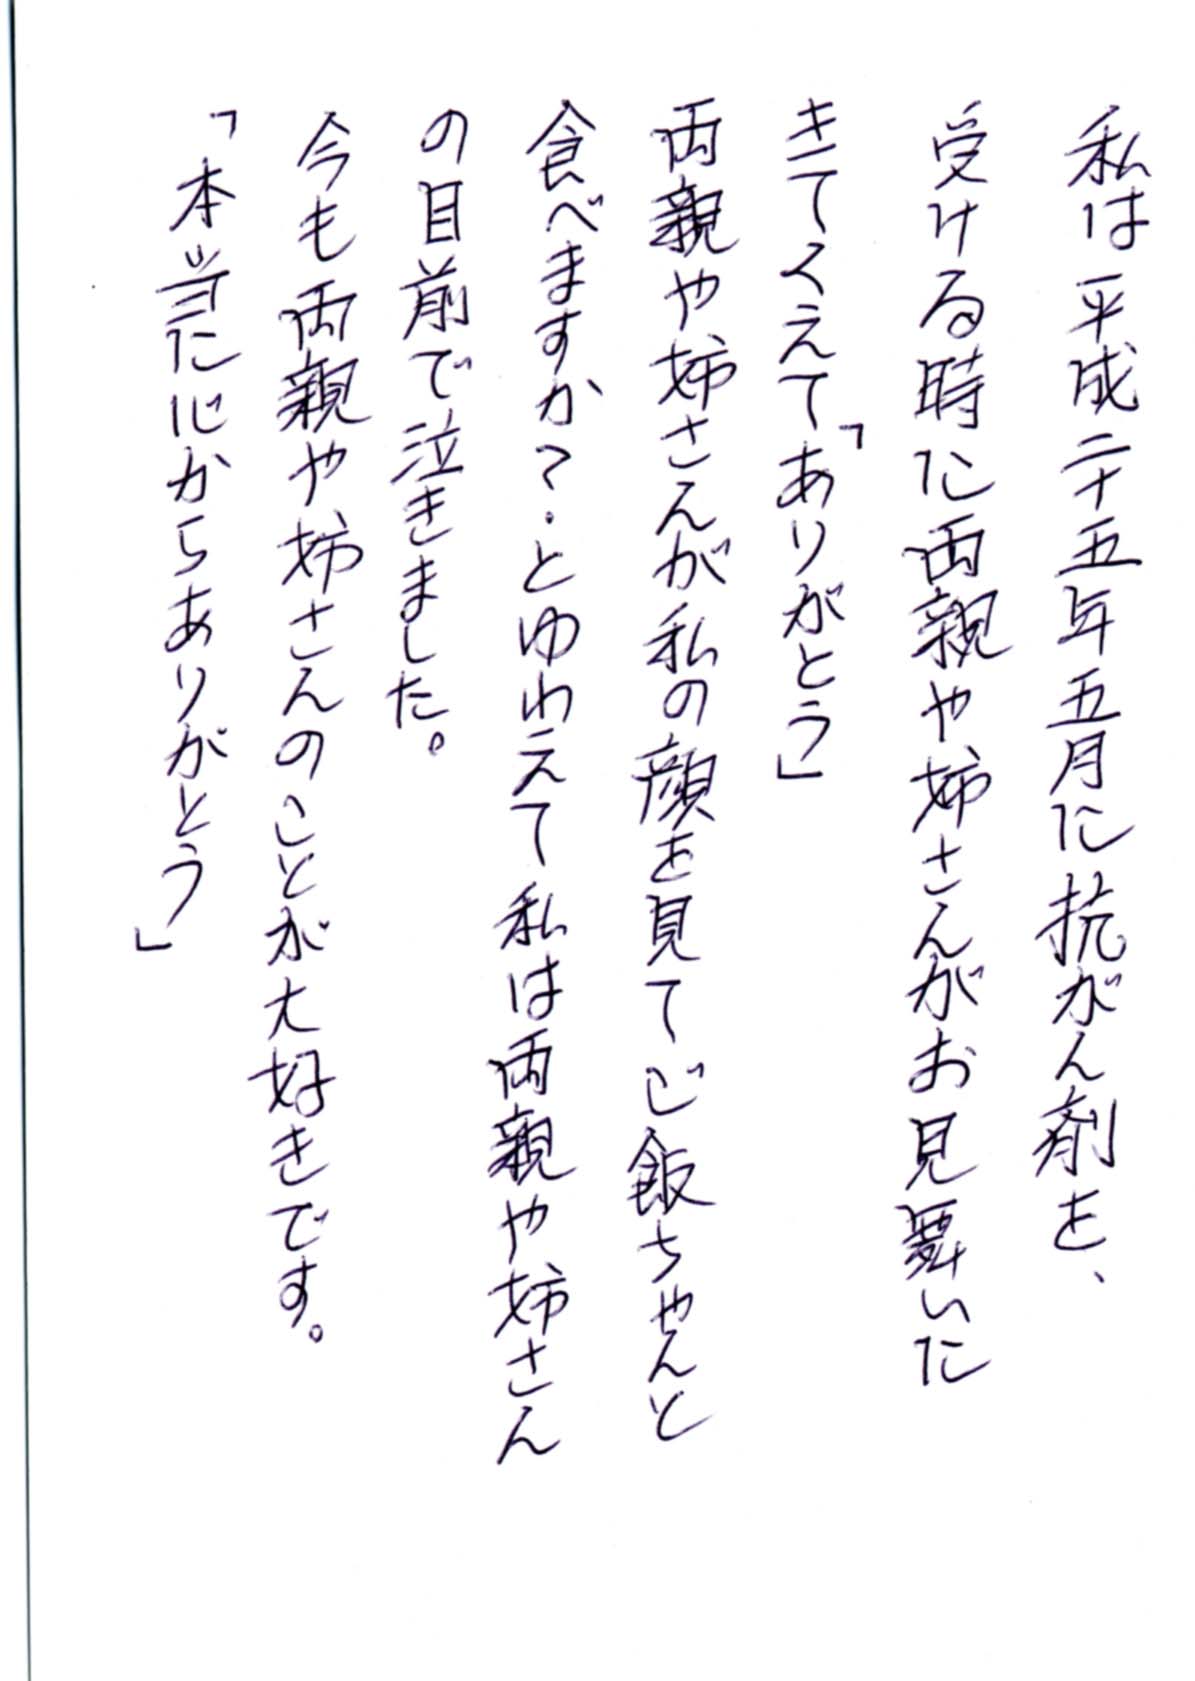 私は平成二十五年五月に抗がん剤を、
受ける時に両親や姉さんがお見舞いに
きてくえて「ありがとう」
両親や姉さんが私の顔を見てご飯ちゃんと
食べますか?.とゆわえて私は両親や姉さん
の目前で泣きました。
今も両親や姉さんのことが大好きです。
「本当に心からありがとう」